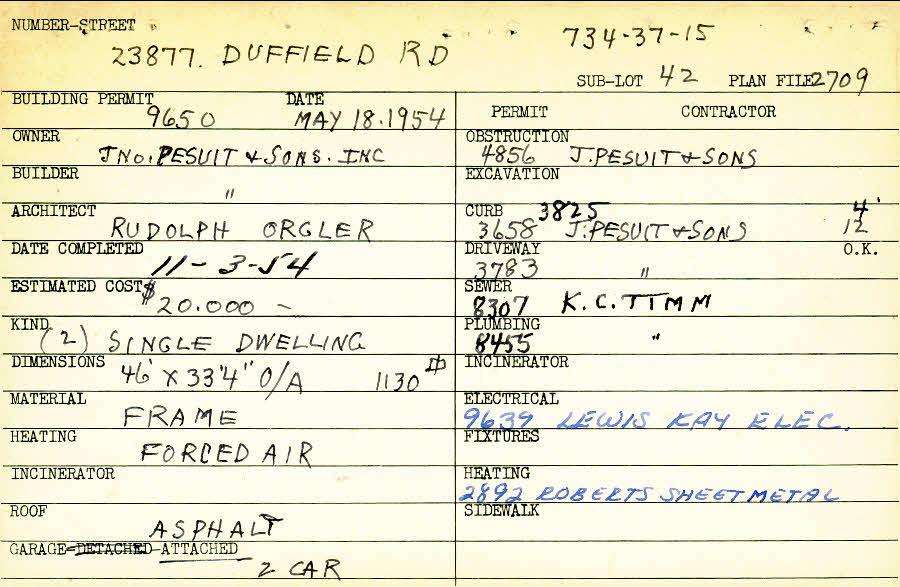 NUMBER-STREET
23877. DUFFIELD RD 734-37-15
SUB-LOT 42 PLAN FILE 2709
BUILDING PERMIT DATE
9650 MAY 18.1954
OWNER
JNO. PESUIT & SONS. INC
BUILDER
"
ARCHITECT
RUDOLPH ORGLER
DATE COMPLETED
11-3-54
ESTIMATED COST $
20.000 -
KIND
(2) SINGLE DWELLING
DIMENSIONS
46' X 33'4" O/A 1130
MATERIAL
FRAME
HEATING
FORCED AIR
INCINERATOR
ROOF
ASPHALT
GARAGE-DETACHED-ATTACHED
2 CAR
PERMIT CONTRACTOR
OBSTRUCTION
4856 J. PESUIT & SONS
EXCAVATION
CURB 3825 4'
3658 J. PESUIT & SONS 12
DRIVEWAY O.K.
3783 "
SEWER
8307 K.C. TIMM
PLUMBING
8455 "
INCINERATOR
ELECTRICAL
9639 LEWIS KAY ELEC.
FIXTURES
HEATING
2892 ROBERTS SHEETMETAL
SIDEWALK